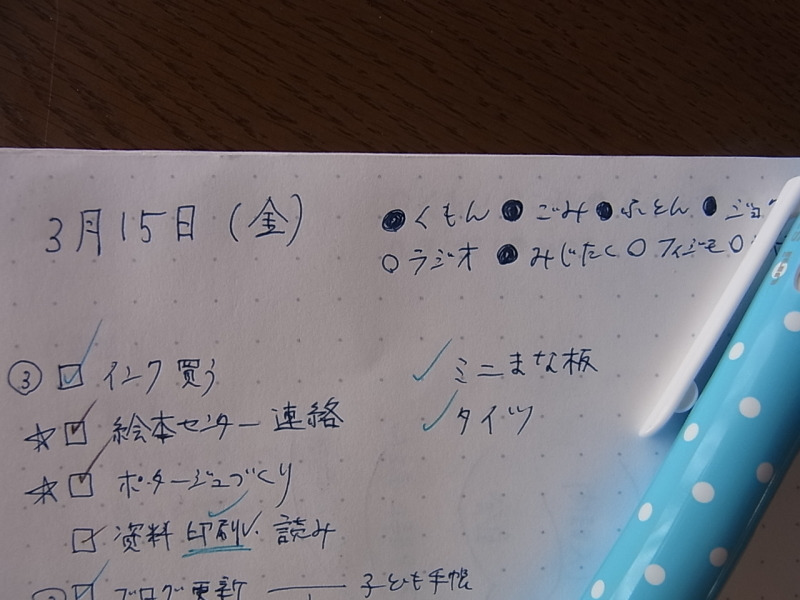 3月15日(金)
●くもん ●ごみ ●ふとん ●
○ラジオ ●みじたく ○フィジモ ○
③ ☑ インク買う ✓ミニまな板
☆☑ 絵本センター連絡 ✓タイツ
☆☑ ポタージュづくり
☑ 資料印刷✓. 読み
☑ ブログ更新 ── 子ども手帳